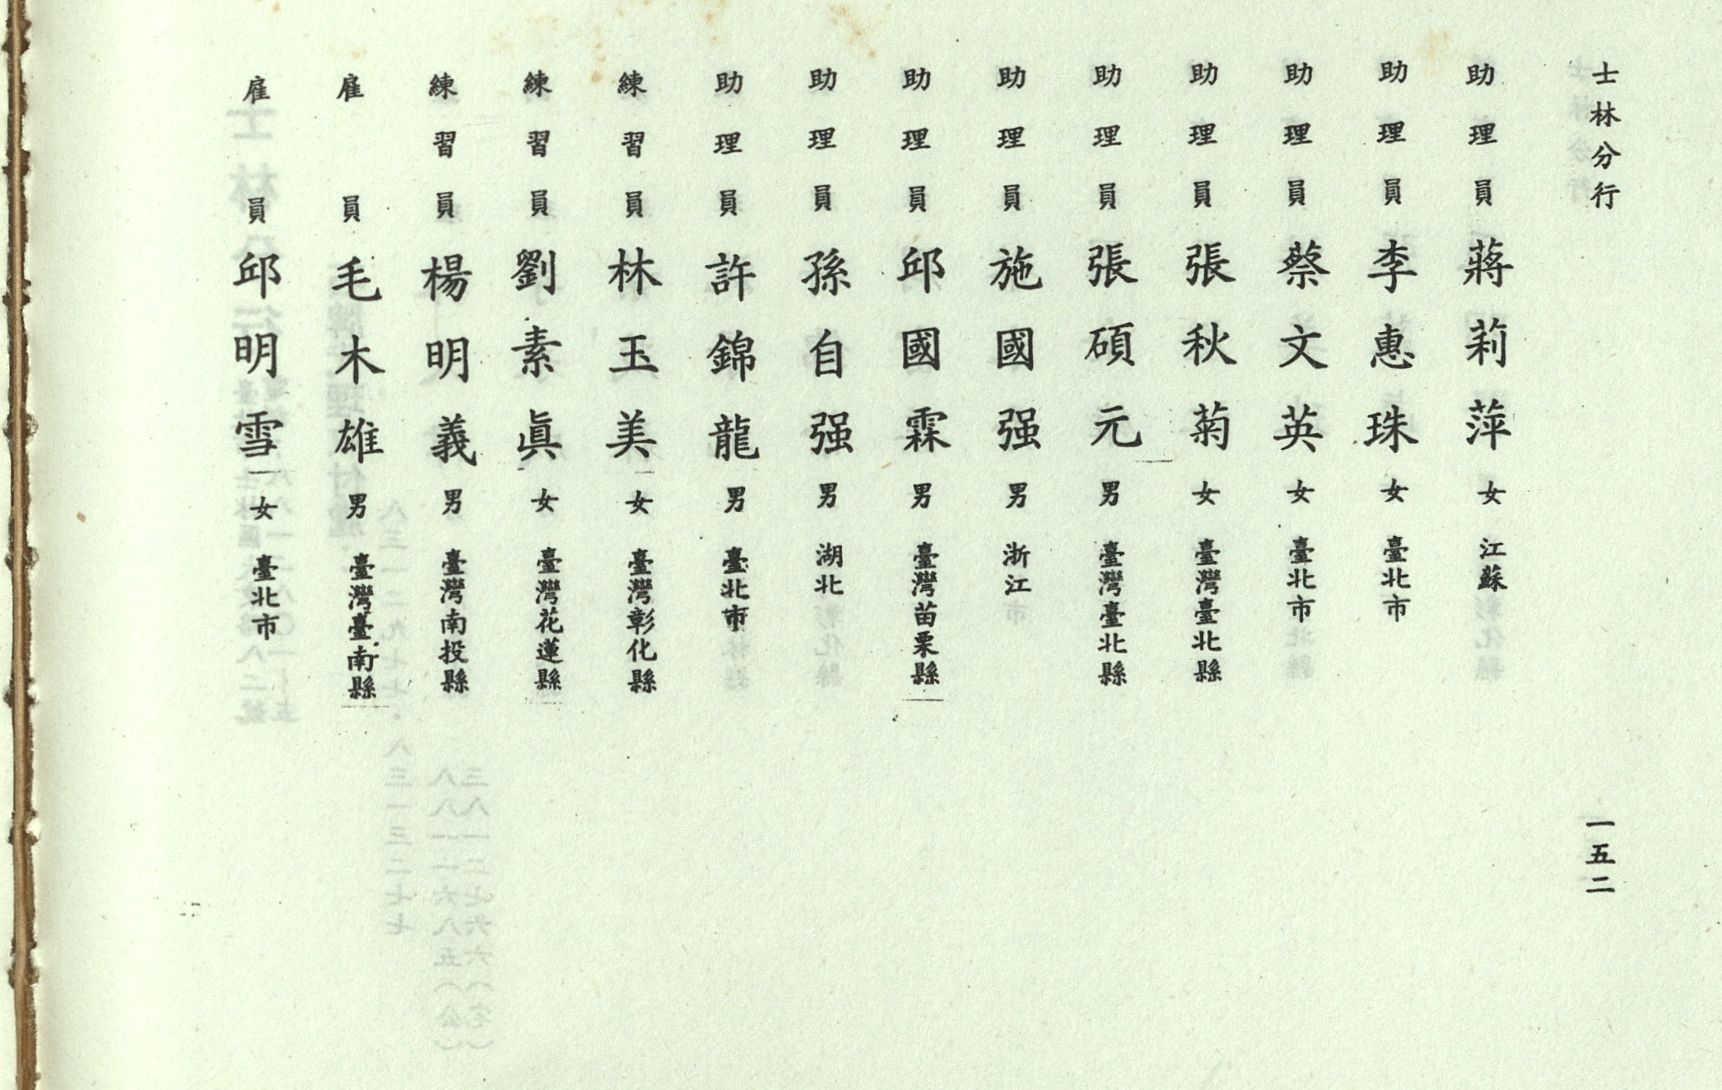 士林分行
一五二
助理員 蔣莉萍 女 江蘇
助理員 李惠珠 女 臺北市
助理員 蔡文英 女 臺北市
助理員 張秋菊 女 臺灣臺北縣
助理員 張碩元 男 臺灣臺北縣
助理員 施國强 男 浙江
助理員 邱國霖 男 臺灣苗栗縣
助理員 孫自强 男 湖北
助理員 許錦龍 男 臺北市
練習員 林玉美 女 臺灣彰化縣
練習員 劉素眞 女 臺灣花蓮縣
練習員 楊明義 男 臺灣南投縣
雇員 毛木雄 男 臺灣臺南縣
雇員 邱明雪 女 臺北市